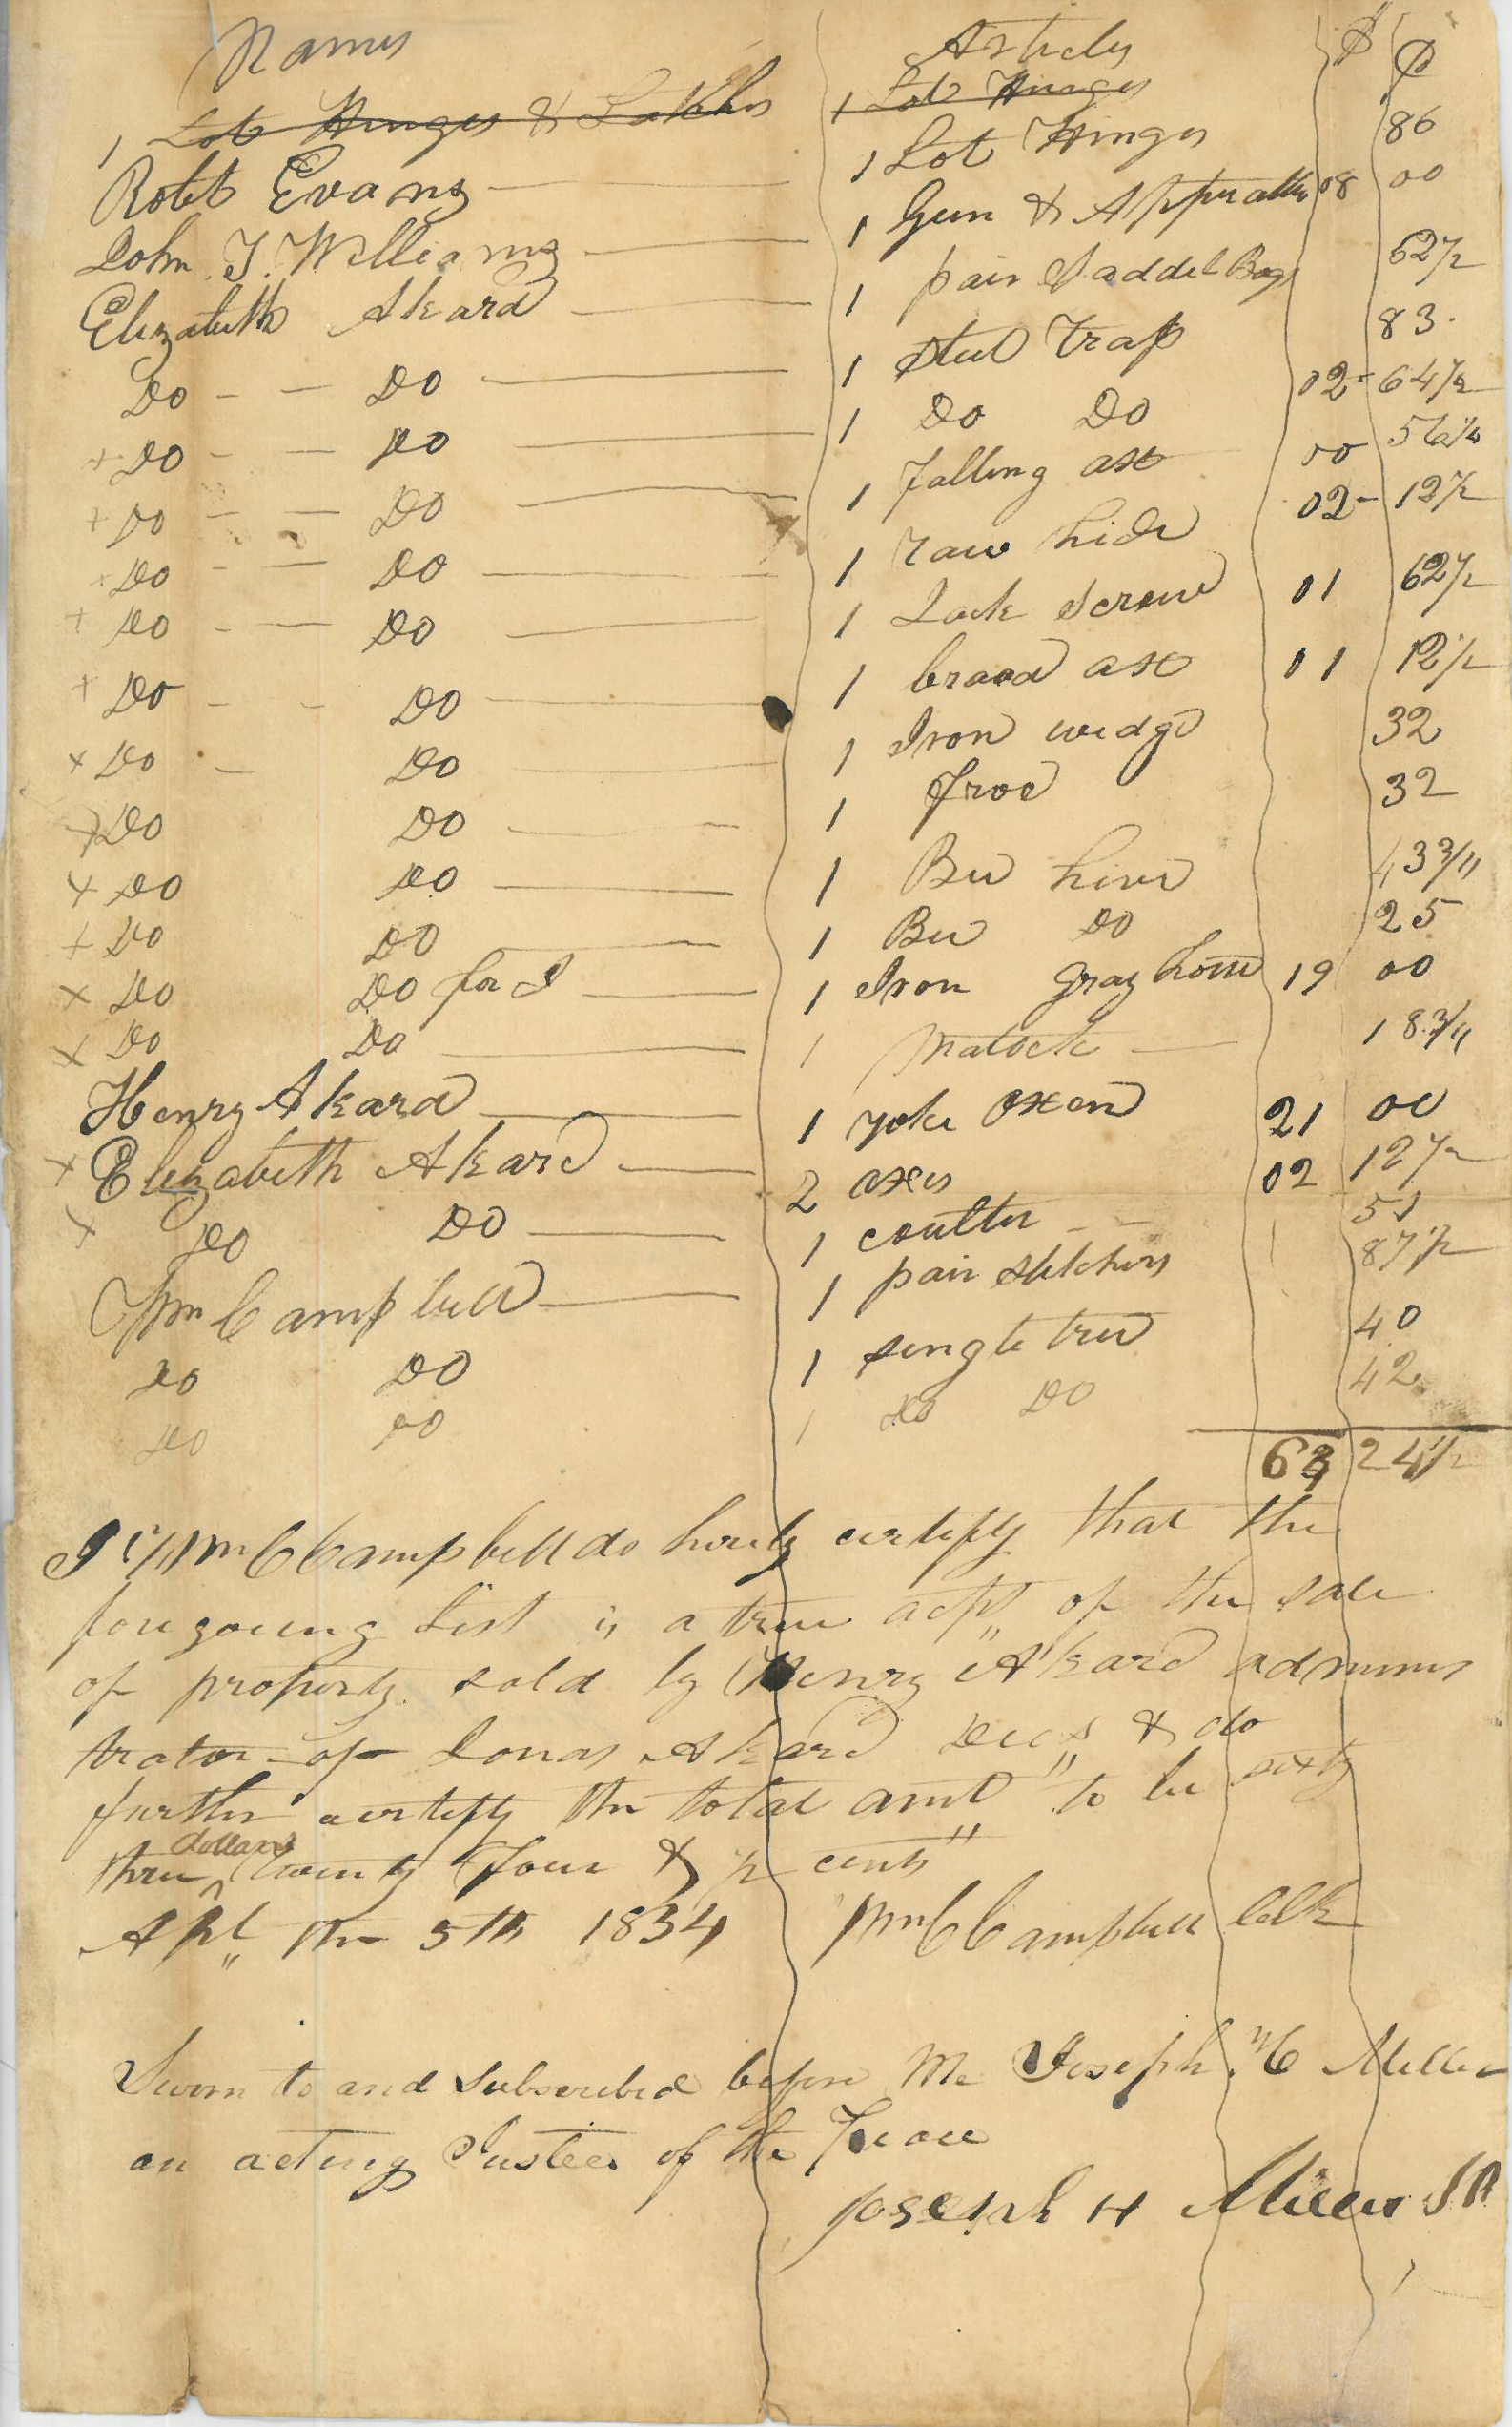 Names Articles $ ₵
1 Lot Hinges & Latches 1 Lot Hinges
Robt Evans 1 Lot Hinges 86
John T. Williams 1 Gun & Apprattus 08 00
Elizabeth Akard 1 pair Saddel Bags 62 1/2
Do Do 1 steel Trap 83
+ Do Do 1 Do Do 02 64 1/2
+ Do Do 1 falling ax 00 56 1/4
+ Do Do 1 raw hide 02 12 1/2
+ Do Do 1 Jack Screw 01 62 1/2
+ Do Do 1 braod ax 01 12 1/2
+ Do Do 1 Iron wedge 32
+ Do Do 1 froe 32
+ Do Do 1 Bee hive 43 3/4
+ Do Do 1 Bee Do 25
+ Do Do for J 1 Iron gray horse 19 00
+ Do Do 1 matock 18 3/4
Henry Akard 1 yoke oxen 21 00
+ Elizabeth Akard 2 axes 02 12 1/2
+ Do Do 1 coulter 51
Wm C Campbell 1 pair stretchers 87 1/2
Do Do 1 single tree 40
Do Do 1 Do Do 42
63 24 1/2
I Wm C Campbell do hereby certify that the
foregoing List is a true acpt of the sale
of property sold by Henry Akard adminis
trator of Jonas Akard Decs & do
further certify the total amt to be sixty
three dollars twenty four & 1/2 cents
Apl the 5th 1834 Wm C Campbell Celk
Sworn to and Subscribed before Me Joseph H Miller
an acting Justice of the Peace
Joseph H Miller JP